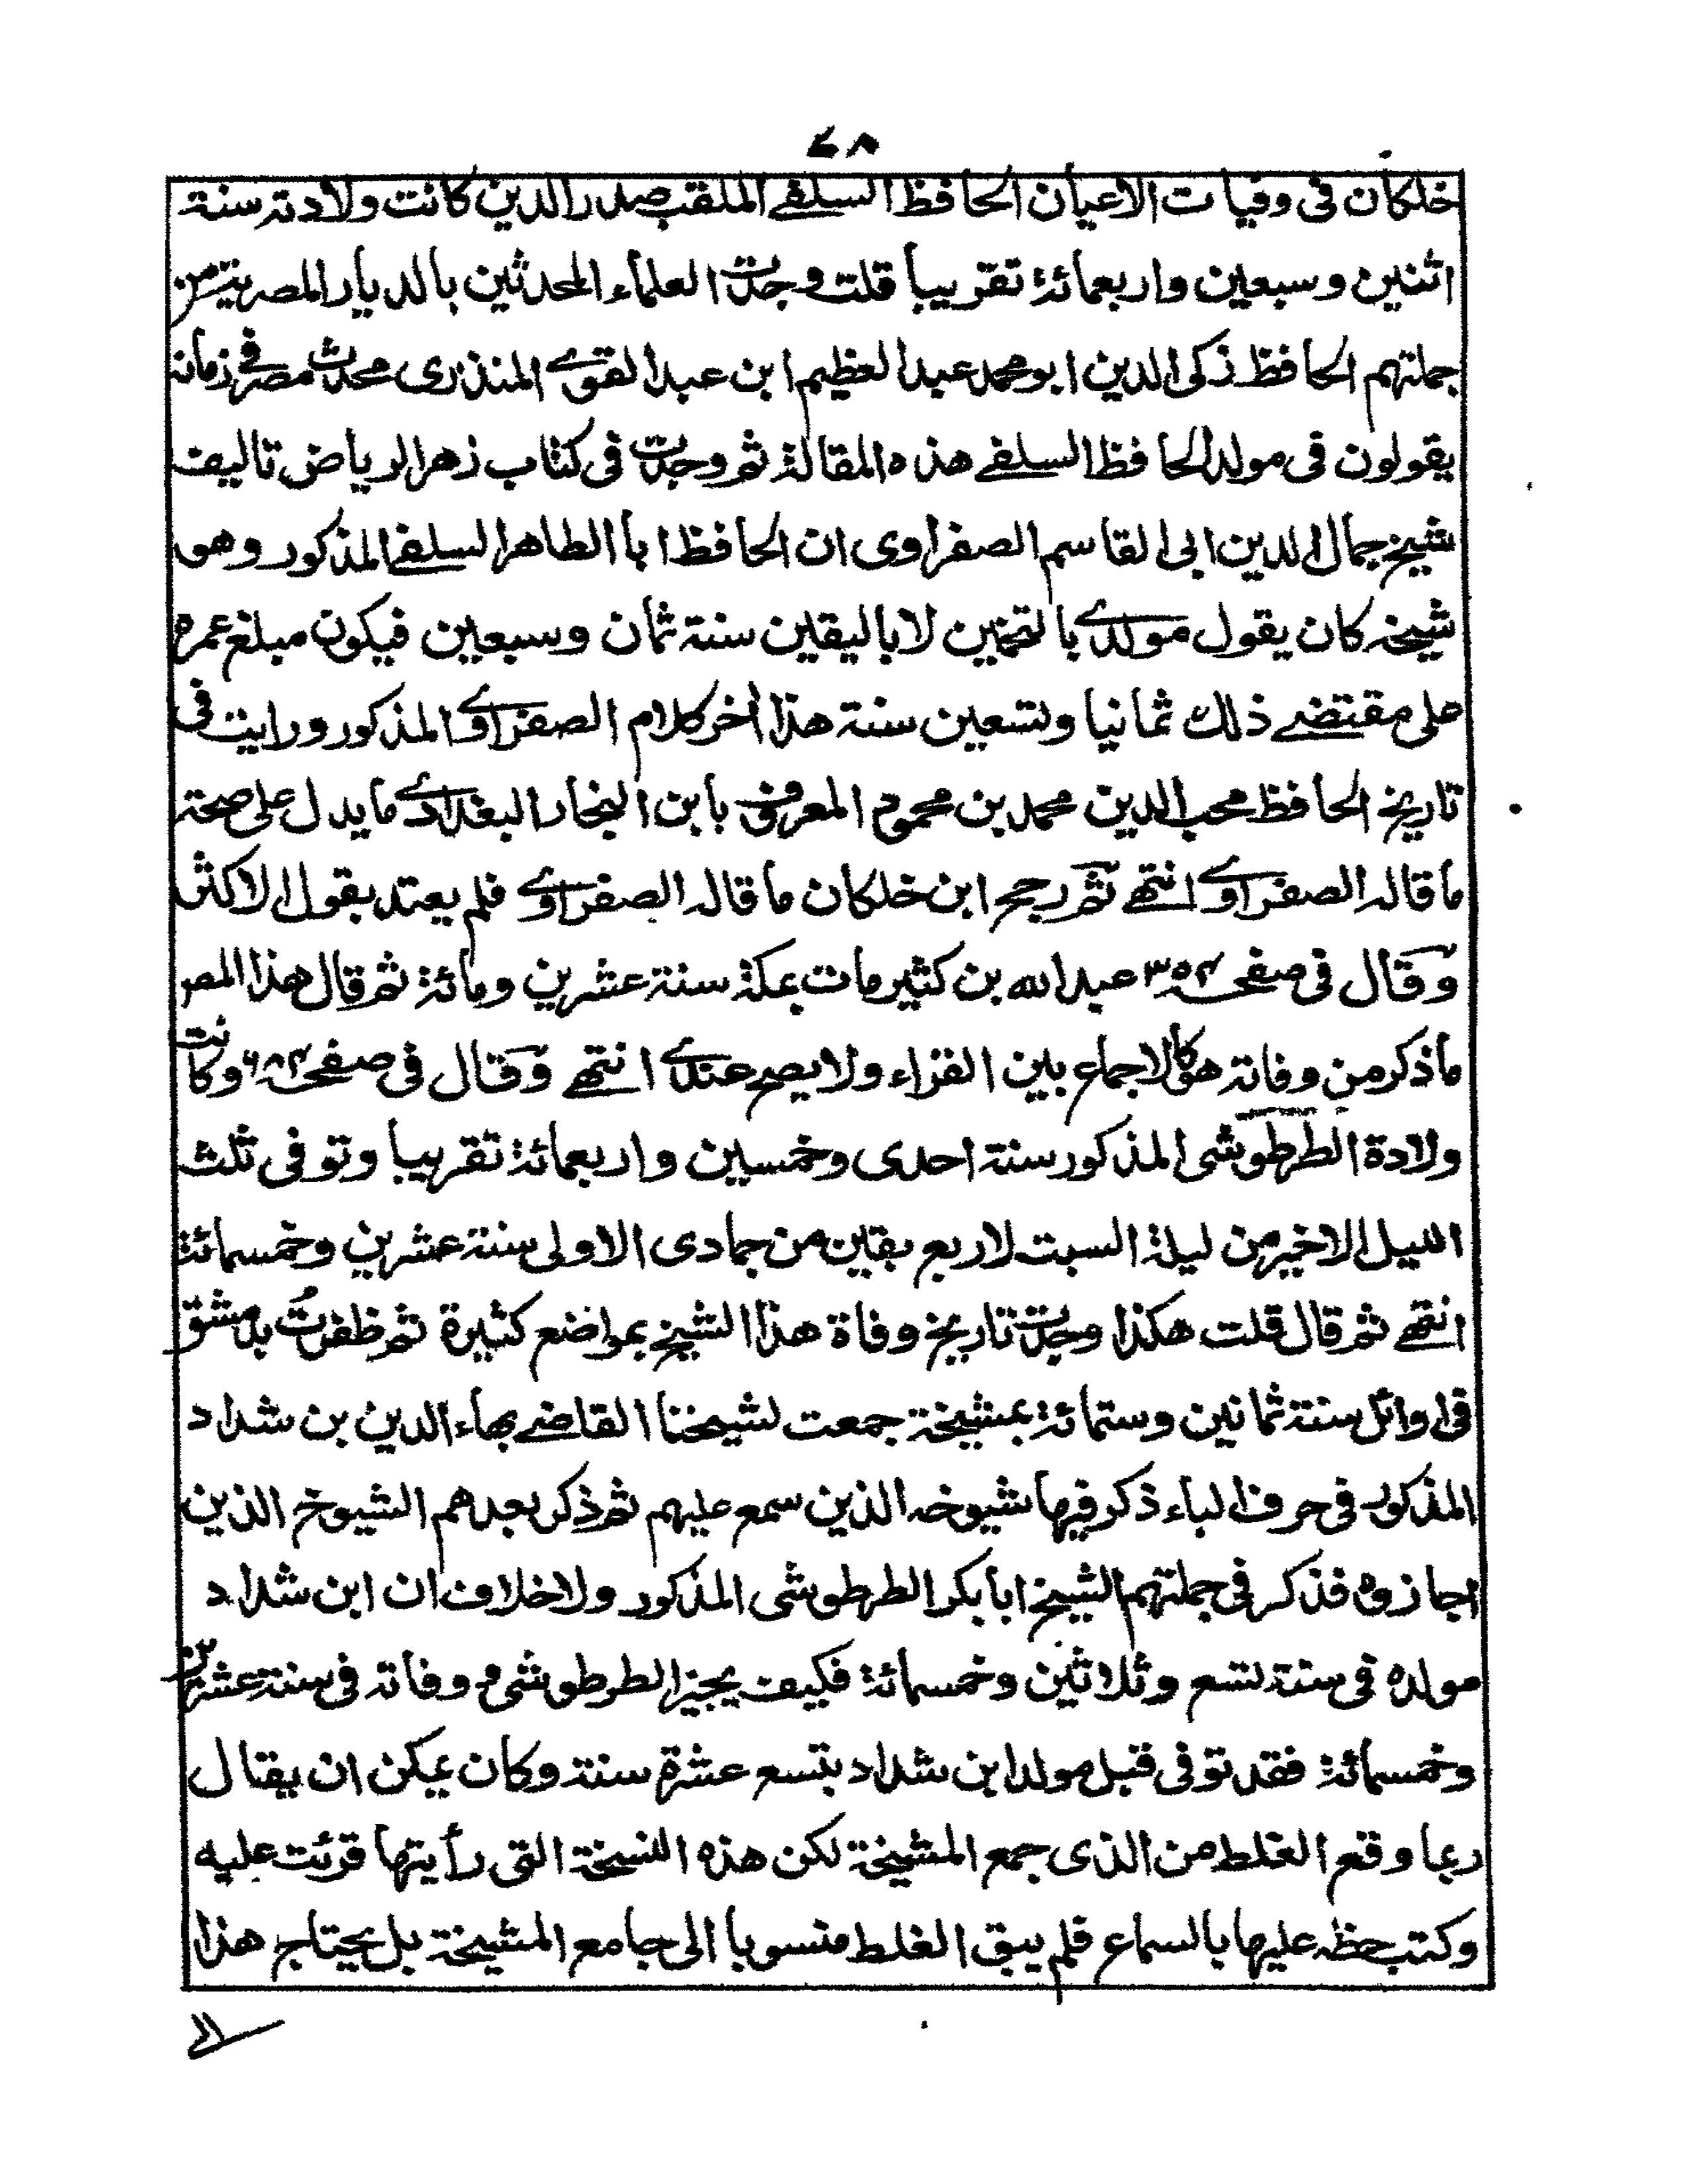 ٤٨
خلكان فى وفيات الاعيان الحافظ السلفے الملقب صدر الدين كانت ولادته سنة
اثنين وسبعين واربعمائة تقريباً قلت وجدت العلماء المحدثين بالديار المصرية من
جملتهم الحافظ زكى الدين ابو محمد عبد العظيم ابن عبد القوے المنذرى محدث مصر فے زمانه
يقولون فى مولد الحافظ السلفے هذه المقالة ثم وجدت فى كتاب زهر الرياض تاليف
شيخ جمال الدين ابى القاسم الصفراوى ان الحافظ ابا الطاهر السلفے المذكور وهو
شيخه كان يقول مولدے بالتخمين لا باليقين سنة ثمان وسبعين فيكون مبلغ عمره
على مقتضے ذلك ثمانيا وتسعين سنة هذا آخر كلام الصفراوے المذكور ورايت فى
تاريخ الحافظ محب الدين محمد بن محمود المعروف بابن النجار البغدادے مايدل على صحة
ما قاله الصفراوے انتهے ثم رجح ابن خلكان ما قاله الصفراوے فلم يعتد بقول الاكثر
وقال فى صفحه ٣٥٢ عبد الله بن كثير مات بمكة سنة عشرين ومائة ثم قال هذا المصر
ماذكر من وفاته هو كالاجماع بين القراء ولا يصح عندے انتهے وقال فى صفحه ٦٨٢ وكانت
ولادة الطرطوشى المذكور سنة احدى وخمسين واربعمائة تقريبا وتوفى ثلث
الليل الاخير من ليلة السبت لاربع بقين من جمادى الاولى سنة عشرين وخمسمائة
انتهے ثم قال قلت هكذا وجدت تاريخ وفاة هذا الشيخ بمواضع كثيرة ثم ظفرت بدمشق
فى اوائل سنة ثمانين وستمائة بمشيخة جمعت لشيخنا القاضے بهاء الدين بن شداد
المذكور فى حرف الباء ذكر فيها شيوخه الذين سمع عليهم ثم ذكر بعدهم الشيوخ الذين
اجازوه فذكر فى جملتهم الشيخ ابابكر الطرطوشى المذكور ولا خلاف ان ابن شداد
مولده فى سنة تسع وثلاثين وخمسمائة فكيف يجيز الطرطوشى ووفاته فى سنة عشرين
وخمسمائة فقد توفى قبل مولد ابن شداد بتسع عشرة سنة وكان يمكن ان يقال
ربما وقع الغلط من الذى جمع المشيخة لكن هذه النسخة التى رأيتها قرئت عليه
وكتب خطه عليها بالسماع فلم يبق الغلط منسوبا الى جامع المشيخة بل يحتاج هذا
الى